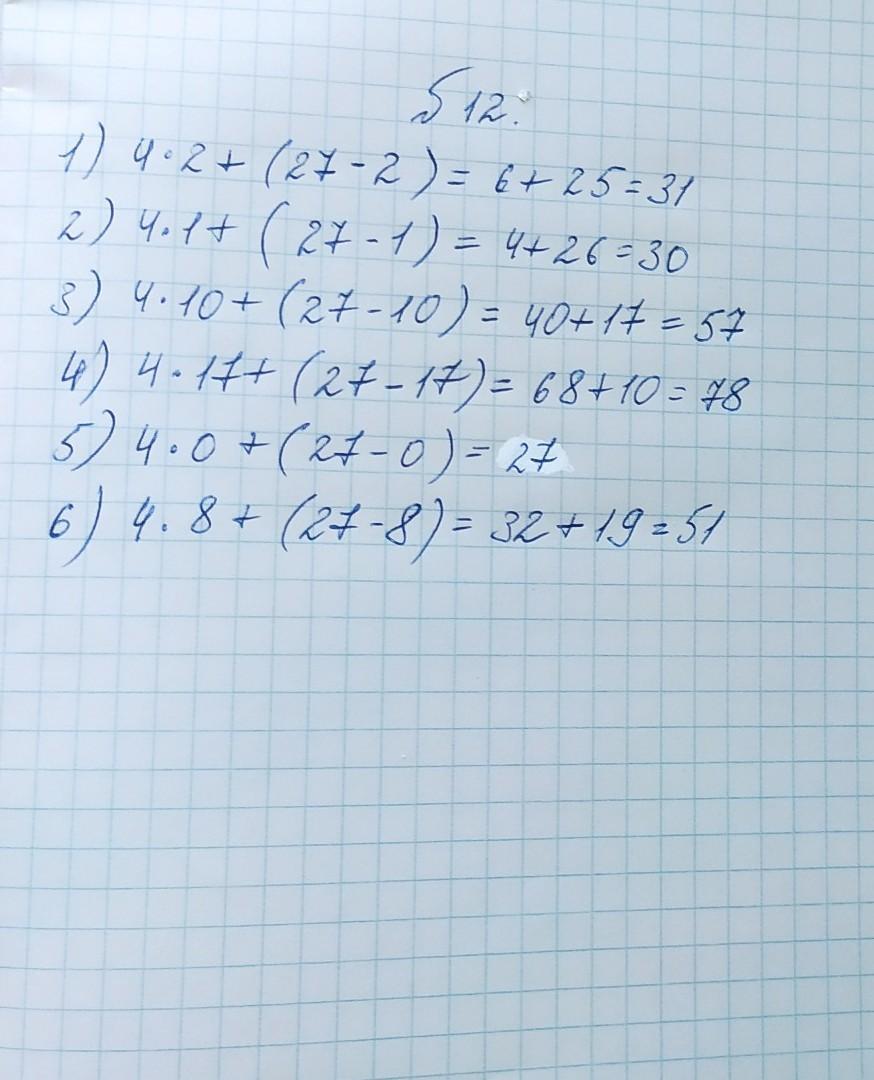 Б 12.
1) 4·2+(27-2)=6+25=31
2) 4·1+(27-1)=4+26=30
3) 4·10+(27-10)=40+17=57
4) 4·17+(27-17)=68+10=78
5) 4·0+(27-0)=27
6) 4·8+(27-8)=32+19=51